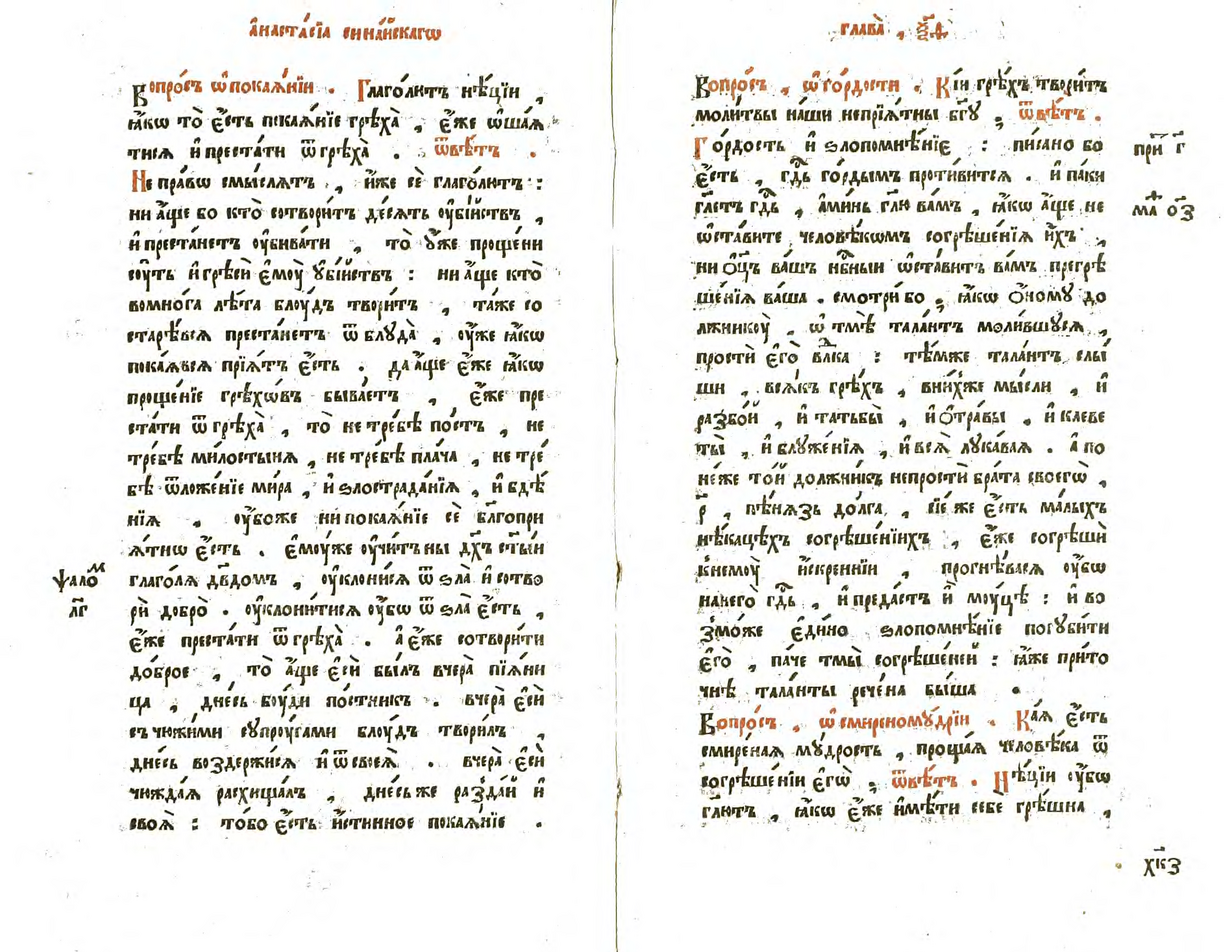 а҆наста́сїа синаи́скагѡ
Вопро́съ ѡ҆ покаѧ́нїи . Глаго́лютъ нѣ́цїи ,
ꙗ҆́кѡ то̀ є҆́сть покаѧ́нїе грѣха̀ , є҆́же ѡ҆шаѧ́
тисѧ и҆ преста́ти ѿ грѣха̀ . ѿвѣ́тъ .
Не пра́вѡ смы́слѧтъ , и҆́же сѐ глаго́лютъ :
ни а҆́ще бо кто̀ сотвори́тъ де́сѧть оу҆бі́йствъ ,
и҆ преста́нетъ оу҆бива́ти , то̀ ᲂу҆́же проще́ни
соу́ть и҆ грѣсѝ є҆моу̀ ꙋбі́йствъ : ни а҆́ще кто̀
во мно́га лѣ́та блоу́дъ твори́тъ , та́же со
старѣ́всѧ преста́нетъ ѿ блꙋда̀ , оу҆́же ꙗ҆́кѡ
покаѧ́всѧ прїѧ́тъ є҆́сть . да а҆́ще є҆́же ꙗ҆́кѡ
проще́нїе грѣхѡ́въ быва́етъ , є҆́же пре
ста́ти ѿ грѣха̀ , то̀ не тре́бѣ по́стъ , не
тре́бѣ ми́лостынѧ , не тре́бѣ пла́ча , не тре́
бѣ ѿложе́нїе ми́ра , и҆ ѕлострада́нїѧ , и҆ бдѣ́
нїѧ . оу҆́боже ни покаѧ́нїе сѐ бл҃гопри
ѧ́тнѡ є҆́сть . є҆моу́же оу҆чи́тъ ны дх҃ъ ст҃ы́и
ѱало́м
л҃г
глаго́лѧ дв҃домъ , оу҆клони́сѧ ѿ ѕла̀ и҆ сотво
рѝ добро̀ . оу҆клони́тисѧ оу҆́бѡ ѿ ѕла̀ є҆́сть ,
є҆́же преста́ти ѿ грѣха̀ . а҆ є҆́же сотвори́ти
до́брое , то̀ а҆́ще є҆сѝ бы́лъ вчера̀ пїѧ́ни
ца , дне́сь боу́ди по́стникъ . вчера̀ є҆сѝ
съ чюжи́ми сꙋпроу́гами блоу́дъ твори́лъ ,
дне́сь воздержи́сѧ и҆ ѿ своеѧ̀ . вчера̀ є҆сѝ
чюжда́ѧ расхища́лъ , дне́сь же разда́й и҆
своѧ̀ : то́бо є҆́сть и҆́стинное покаѧ́нїе .
глава̀ , ѯ҃д
Вопро́съ , ѡ҆ го́рдости . Кі́и грѣ́хъ твори́тъ
моли́твы на́ши непрїѧ́тны бг҃ꙋ ; ѿвѣ́тъ .
Го́рдость и҆ ѕлопомнѣ́нїе : пи́сано бо
при́т г҃
є҆́сть , гд҇ь го́рдымъ проти́витсѧ . и҆ па́ки
гл҃етъ гд҇ь , а҆ми́нь гл҃ю ва́мъ , ꙗ҆́кѡ а҆́ще не
ма́т о҃з
ѡ҆ста́вите человѣ́кѡмъ согрѣше́нїѧ и҆́хъ ,
ни ѻ҆ц҃ъ ва́шъ нб҇ныи ѡ҆ста́витъ ва́мъ прегрѣ
ше́нїѧ ва́ша . смотри́ бо , ꙗ҆́кѡ ѻ҆́номꙋ до
лжникоу̀ , ѡ҆ тмѣ̀ тала́нтъ моли́вшꙋсѧ ,
простѝ є҆го̀ вл҇ка : тѣ́мже тала́нтъ слы́
ши , всѧ́къ грѣ́хъ , в ни́хже мы́сли , и҆
разбо́й , и҆ татьбы̀ , и҆ ѻ҆тра́вы , и҆ клеве
ты̀ , и҆ блꙋже́нїѧ , и҆ всѧ̀ лꙋка́ваѧ . а҆ по
не́же то́й должни́къ не простѝ бра́та своегѡ̀ ,
р҃ , пѣ́нѧзь до́лга , сїе́ же є҆́сть ма́лыхъ
нѣ́кацѣхъ согрѣше́нїихъ , є҆́же согрѣшѝ
к немоу̀ и҆́скреннїи , прогнѣ́васѧ оу҆́бѡ
на него̀ гд҇ь , и҆ преда́стъ и҆̀ моу́цѣ : и҆ во
змо́же є҆ди́но ѕлопомнѣ́нїе погꙋби́ти
є҆го̀ , па́че тмы̀ согрѣше́ней : ꙗ҆́же при́то
чнѣ тала́нты рече́на бы́ша .
Вопро́съ , ѡ҆ смиреномꙋ́дрїи . Ка́ѧ є҆́сть
смире́наѧ мꙋ́дрость , проща́ѧ человѣ́ка ѿ
согрѣше́нїи є҆гѡ̀ ; ѿвѣ́тъ . Нѣ́цїи оу҆́бѡ
гл҃ютъ , ꙗ҆́кѡ є҆́же и҆мѣ́ти себѐ грѣ́шна ,
х҃кз